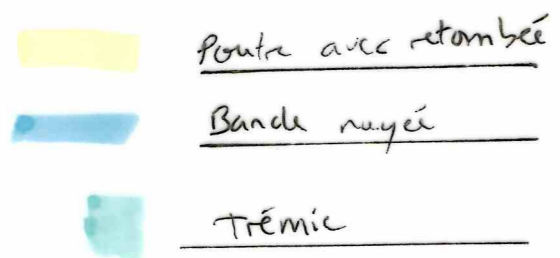 Poutre avec retombée
Bande noyée
Trémie